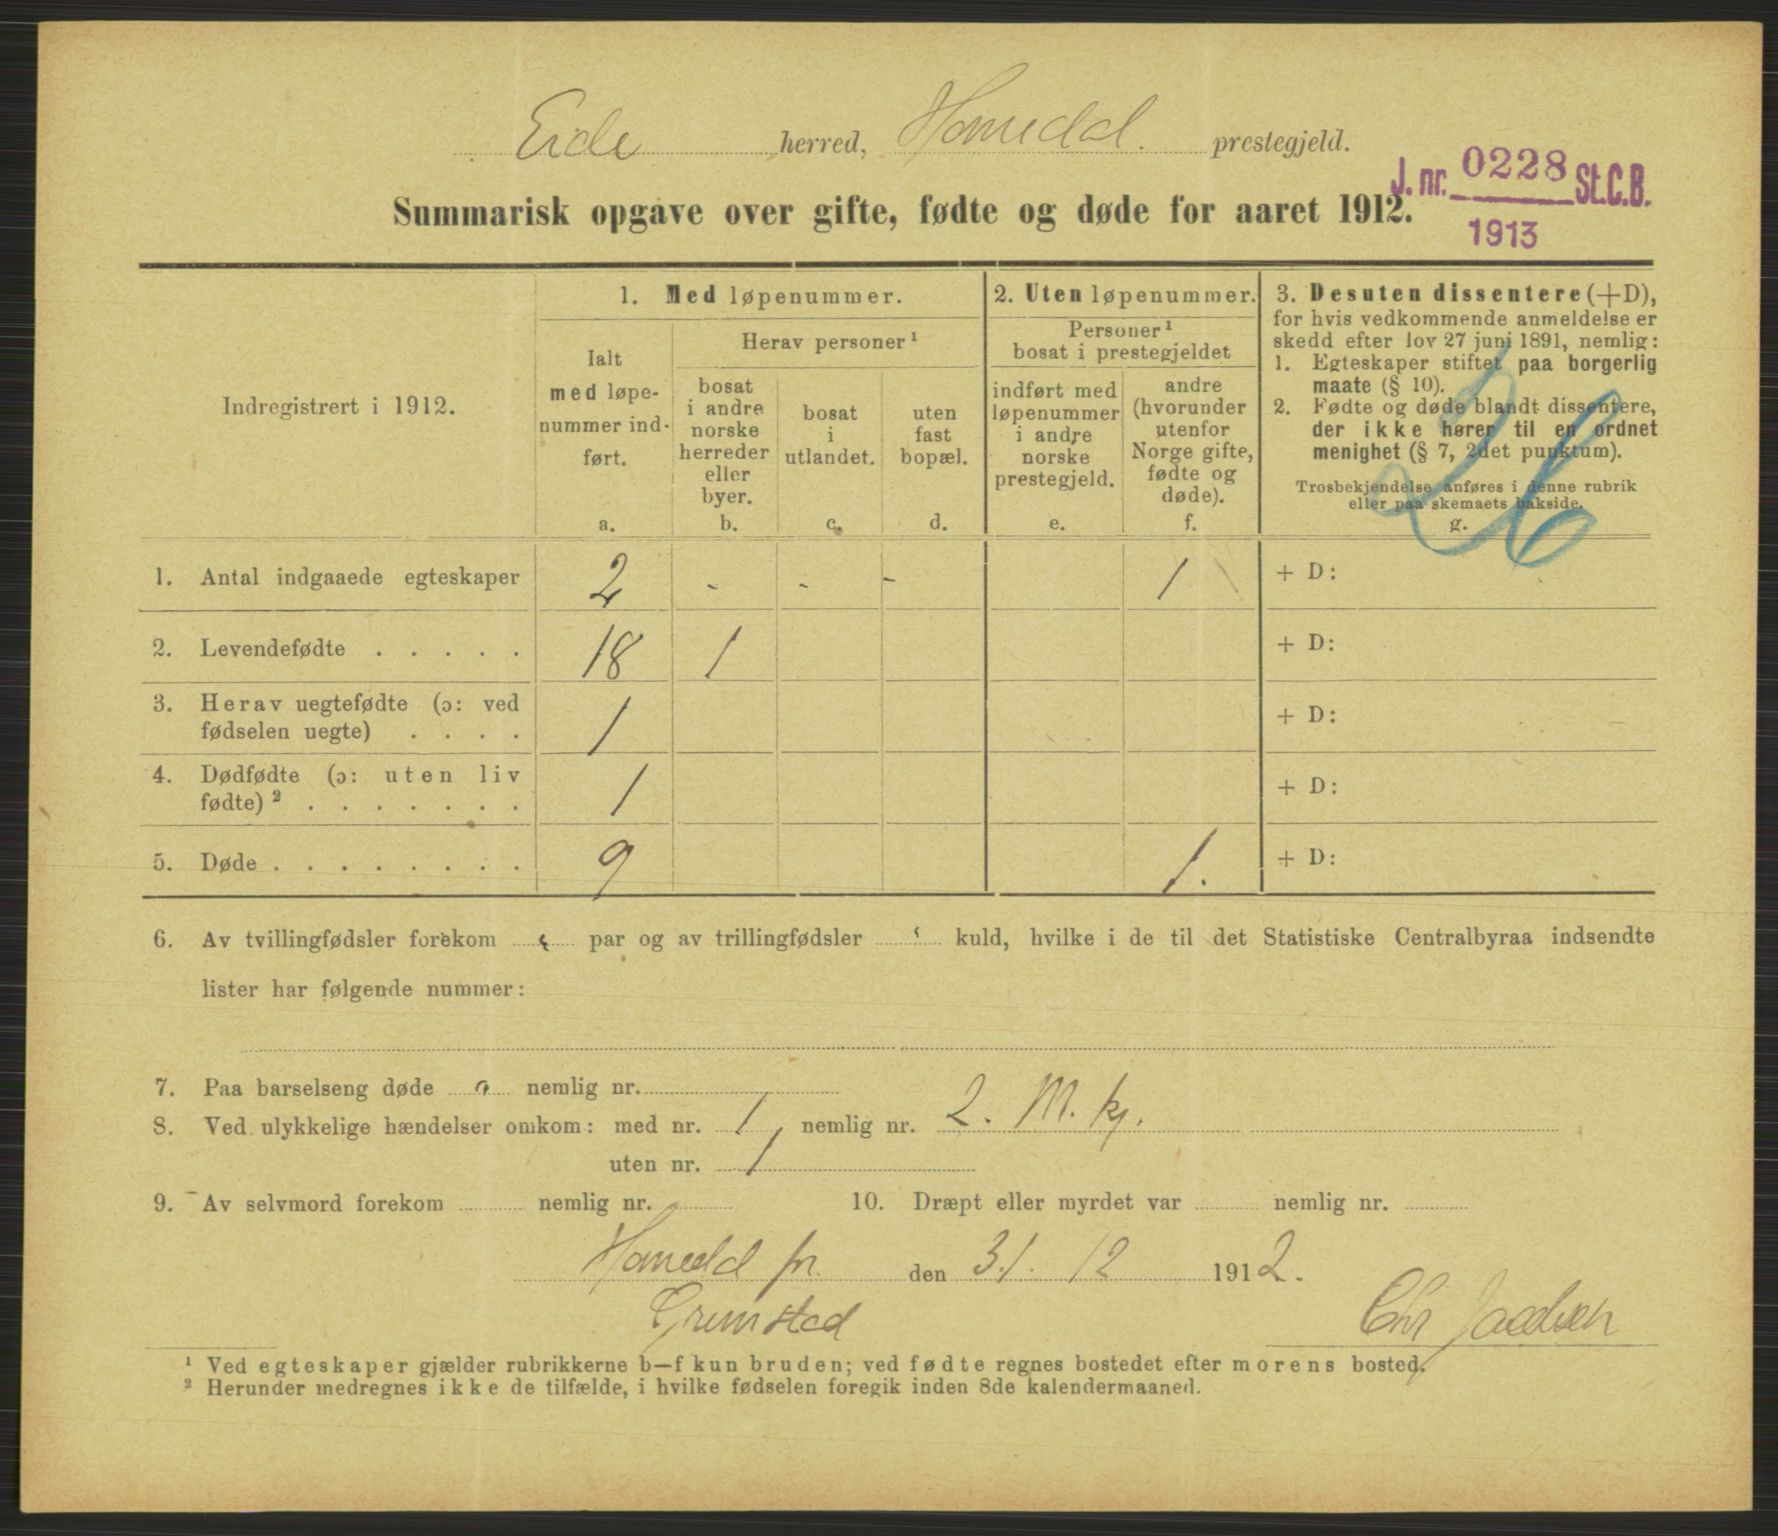 Eide herred, Homedal. prestegjeld.
J. nr. 0228 St.C.B.
1913
Summarisk opgave over gifte, fødte og døde for aaret 1912.
Indregistrert i 1912.
1. Med løpenummer.
Ialt
med løpe-
nummer ind-
ført.
a.
Herav personer ¹
bosat
i andre
norske
herreder
eller
byer.
b.
bosat
i
utlandet.
c.
uten
fast
bopæl.
d.
2. Uten løpenummer.
Personer ¹
bosat i prestegjeldet
indført med
løpenummer
i andre
norske
prestegjeld.
e.
andre
(hvorunder
utenfor
Norge gifte,
fødte og
døde).
f.
3. Desuten dissentere (+D),
for hvis vedkommende anmeldelse er
skedd efter lov 27 juni 1891, nemlig:
1. Egteskaper stiftet paa borgerlig
maate (§ 10).
2. Fødte og døde blandt dissentere,
der ikke hører til en ordnet
menighet (§ 7, 2det punktum).
Trosbekjendelse anføres i denne rubrik
eller paa skemaets bakside.
g.
26
1. Antal indgaaede egteskaper 2 - - - 1 + D:
2. Levendefødte . . . . . 18 1 + D:
3. Herav uegtefødte (ɔ: ved
fødselen uegte) . . . . 1 + D:
4. Dødfødte (ɔ: uten liv
fødte) ² . . . . . . . 1 + D:
5. Døde . . . . . . . . 9 1. + D:
6. Av tvillingfødsler forekom par og av trillingfødsler kuld, hvilke i de til det Statistiske Centralbyraa indsendte
lister har følgende nummer:
7. Paa barselseng døde 0 nemlig nr.
8. Ved ulykkelige hændelser omkom: med nr. 1, nemlig nr. 2. M. kj.
uten nr. 1
9. Av selvmord forekom nemlig nr. 10. Dræpt eller myrdet var nemlig nr.
Homedal pr. den 31. 12 1912.
Grimstad
Chr Jacobsen
¹ Ved egteskaper gjælder rubrikkerne b—f kun bruden; ved fødte regnes bostedet efter morens bosted.
² Herunder medregnes ikke de tilfælde, i hvilke fødselen foregik inden 8de kalendermaaned.